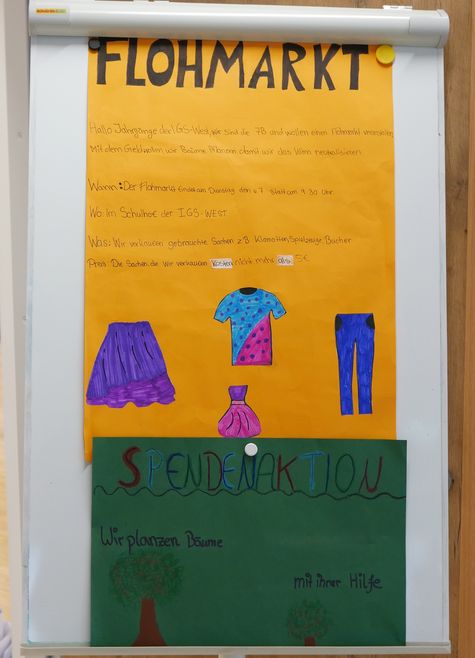 FLOHMARKT
Hallo Jahrgänge der IGS-West, wir sind die 7B und wollen einen Flohmarkt veranstalten
Mit dem Geld wollen wir Bäume pflanzen damit wir das Klima neutralisieren
Wann: Der Flohmarkt findet am Dienstag den 4.7 statt um 9:30 Uhr.
Wo: Im Schulhof der I.GS-WEST
Was: Wir verkaufen gebrauchte Sachen z.B Klamotten, Spielzeuge, Bücher
Preis: Die Sachen die wir verkaufen kosten nicht mehr als 5€
SPENDENAKTION
Wir planzen Bäume
mit ihrer Hilfe